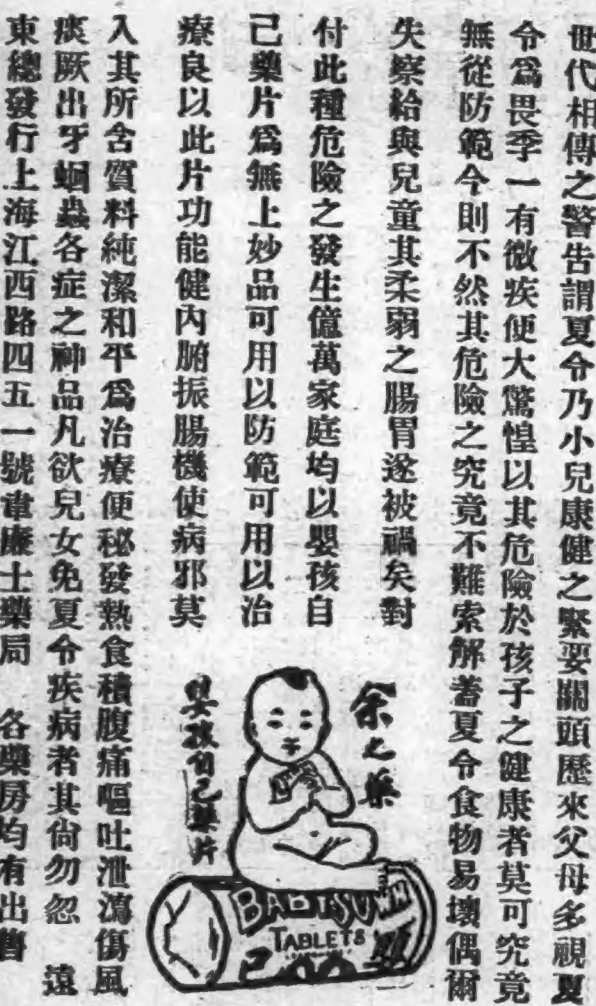 世代相傳之警告謂夏令乃小兒康健之緊要關頭歷來父母多視夏
令爲畏季一有微疾便大驚惶以其危險於孩子之健康者莫可究竟
無從防範今則不然其危險之究竟不難索解蓋夏令食物易壞偶爾
失察給與兒童其柔弱之腸胃遂被禍矣對
付此種危險之發生億萬家庭均以嬰孩自
己藥片爲無上妙品可用以防範可用以治
療良以此片功能健內腑振腸機使病邪莫
入其所含質料純潔和平爲治療便秘發熱食積腹痛嘔吐泄瀉傷風
痰厥出牙蛔蟲各症之神品凡欲兒女免夏令疾病者其尙勿忽 遠
東總發行上海江西路四五一號韋廉士藥局 各藥房均有出售
余之藥
嬰孩自己藥片
TABLETS